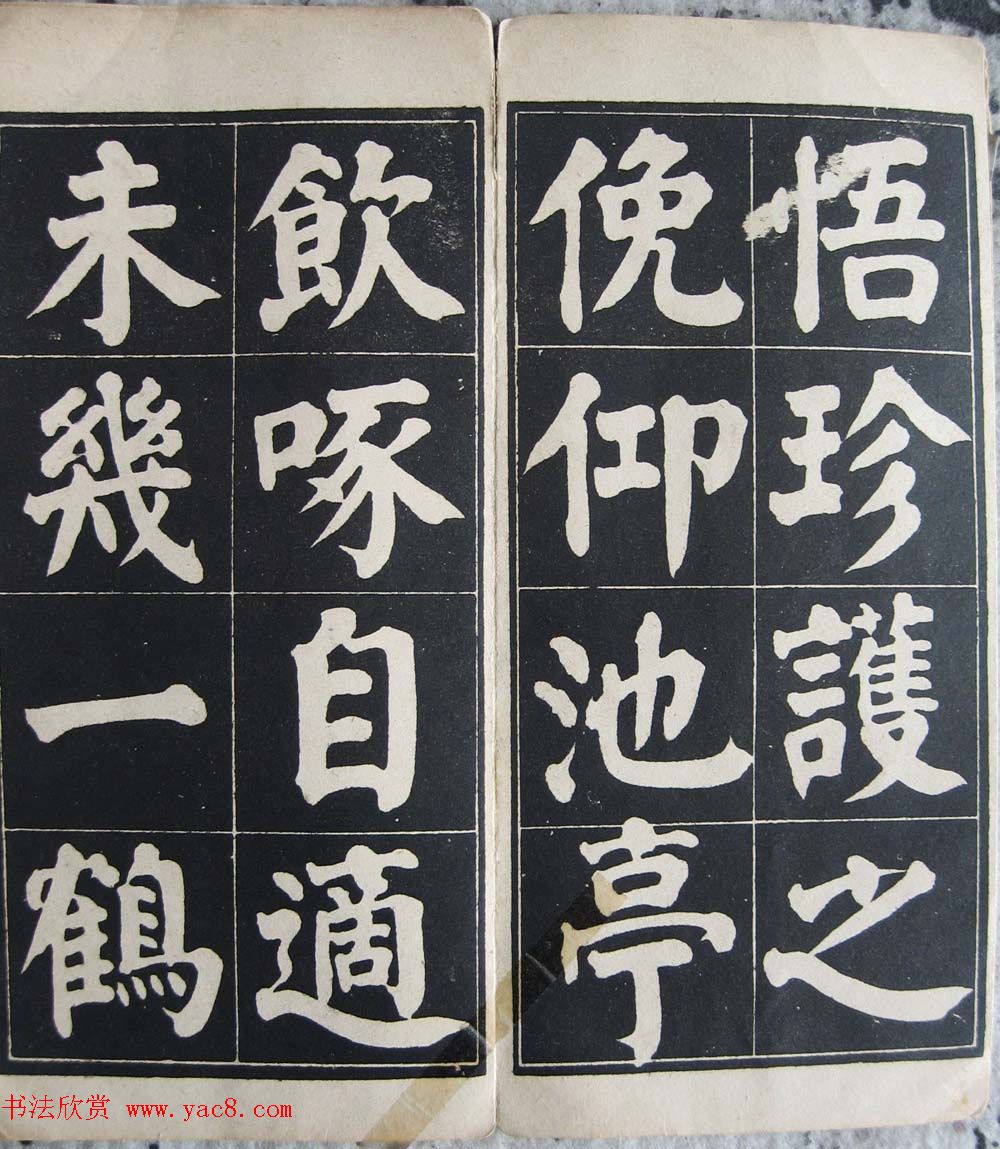 悟珍護之
俛仰池亭
飲啄自適
未幾一鶴
书法欣赏 www.yac8.com